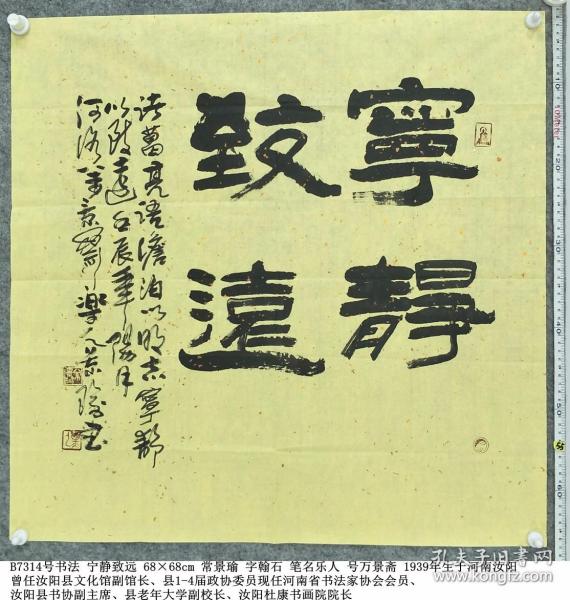 寧靜
致遠
诸葛亮语澹泊以明志寧靜
以致遠壬辰年陽月
河洛萬景齋樂人景瑜書
B7314号书法 宁静致远 68×68cm 常景瑜 字翰石 笔名乐人 号万景斋 1939年生于河南汝阳
曾任汝阳县文化馆副馆长、县1-4届政协委员现任河南省书法家协会会员、
汝阳县书协副主席、县老年大学副校长、汝阳杜康书画院院长
孔夫子旧书网
www.kongfz.com